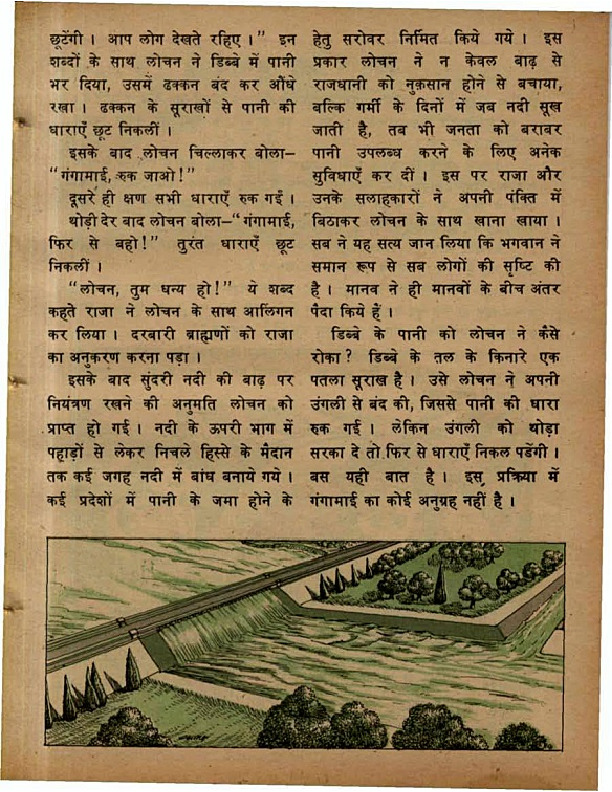 छूटेंगी । आप लोग देखते रहिए ।" इन
शब्दों के साथ लोचन ने डिब्बे में पानी
भर दिया, उसमें ढक्कन बंद कर औंधे
रखा । ढक्कन के सूराखों से पानी की
धाराएँ छूट निकलीं ।
इसके बाद लोचन चिल्लाकर बोला—
"गंगामाई, रुक जाओ !"
दूसरे ही क्षण सभी धाराएँ रुक गईं ।
थोड़ी देर बाद लोचन बोला—"गंगामाई,
फिर से बहो !" तुरंत धाराएँ छूट
निकलीं ।
"लोचन, तुम धन्य हो !" ये शब्द
कहते राजा ने लोचन के साथ आलिंगन
कर लिया । दरबारी ब्राह्मणों को राजा
का अनुकरण करना पड़ा ।
इसके बाद सुंदरी नदी की बाढ़ पर
नियंत्रण रखने की अनुमति लोचन को
प्राप्त हो गई । नदी के ऊपरी भाग में
पहाड़ों से लेकर निचले हिस्से के मैदान
तक कई जगह नदी में बांध बनाये गये ।
कई प्रदेशों में पानी के जमा होने के
हेतु सरोवर निर्मित किये गये । इस
प्रकार लोचन ने न केवल बाढ़ से
राजधानी को नुक़सान होने से बचाया,
बल्कि गर्मी के दिनों में जब नदी सूख
जाती है, तब भी जनता को बराबर
पानी उपलब्ध करने के लिए अनेक
सुविधाएँ कर दीं । इस पर राजा और
उनके सलाहकारों ने अपनी पंक्ति में
बिठाकर लोचन के साथ खाना खाया ।
सब ने यह सत्य जान लिया कि भगवान ने
समान रूप से सब लोगों की सृष्टि की
है । मानव ने ही मानवों के बीच अंतर
पैदा किये हैं ।
डिब्बे के पानी को लोचन ने कैसे
रोका ? डिब्बे के तल के किनारे एक
पतला सूराख है । उसे लोचन ने अपनी
उंगली से बंद की, जिससे पानी की धारा
रुक गई । लेकिन उंगली को थोड़ा
सरका दे तो फिर से धाराएँ निकल पडेंगी ।
बस यही बात है । इस प्रक्रिया में
गंगामाई का कोई अनुग्रह नहीं है ।